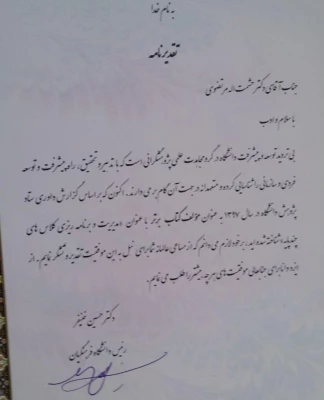 به نام خدا
تقدیرنامه
جناب آقای دکتر حشمت اله مرتضوی
با سلام و ادب
بی تردید توسعه و پیشرفت دانشگاه در گرو مجاهدت علمی پژوهشگرانی است که با تدبیر و تحقیق، راه پیشرفت و توسعه
فردی و سازمانی را شناسایی کرده و متعهدانه در جهت آن گام بر می دارند. اکنون که بر اساس گزارش داوری ستاد
پژوهش دانشگاه در سال ۱۳۹۷ به عنوان مولف کتاب برتر با عنوان «مدیریت و برنامه ریزی کلاس های
چندپایه» شناخته شده اید بر خود لازم می دانم که از مساعی عالمانه شما برای نیل به این موفقیت تقدیر و تشکر نمایم. از
ایزد دانا برای جنابعالی موفقیت های هر چه بیشتر را طلب می نمایم.
دکتر حسین خنیفر
رئیس دانشگاه فرهنگیان